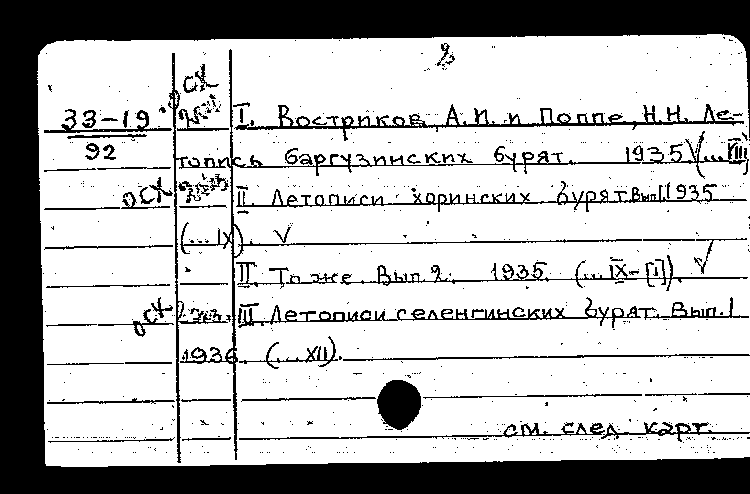 2
33-19 I. Востриков, А.И. и Поппе, Н.Н. Ле-
92 топись баргузинских бурят. 1935 (...VIII)
осх II. Летописи хоринских бурят. Вып.I. 1935
(... IX). V
II. То же. Вып. 2. 1935. (...IX-[I]). V
осх 2 экз. III. Летописи селенгинских бурят. Вып. I
1936. (...XII).
см. след. карт.